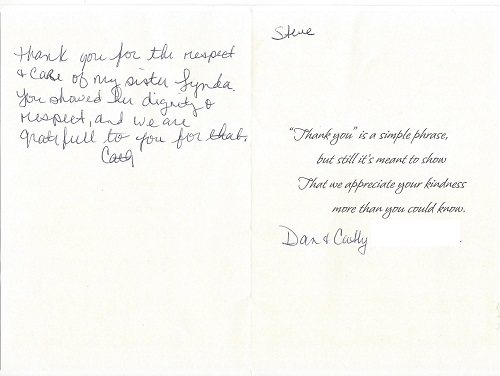 thank you for the respect
& care of my sister Lynda.
You showed her dignity &
respect, and we are
gratefull to you for that.
Cathy
Steve
"Thank you" is a simple phrase,
but still it's meant to show
That we appreciate your kindness
more than you could know.
Dan & Cathy